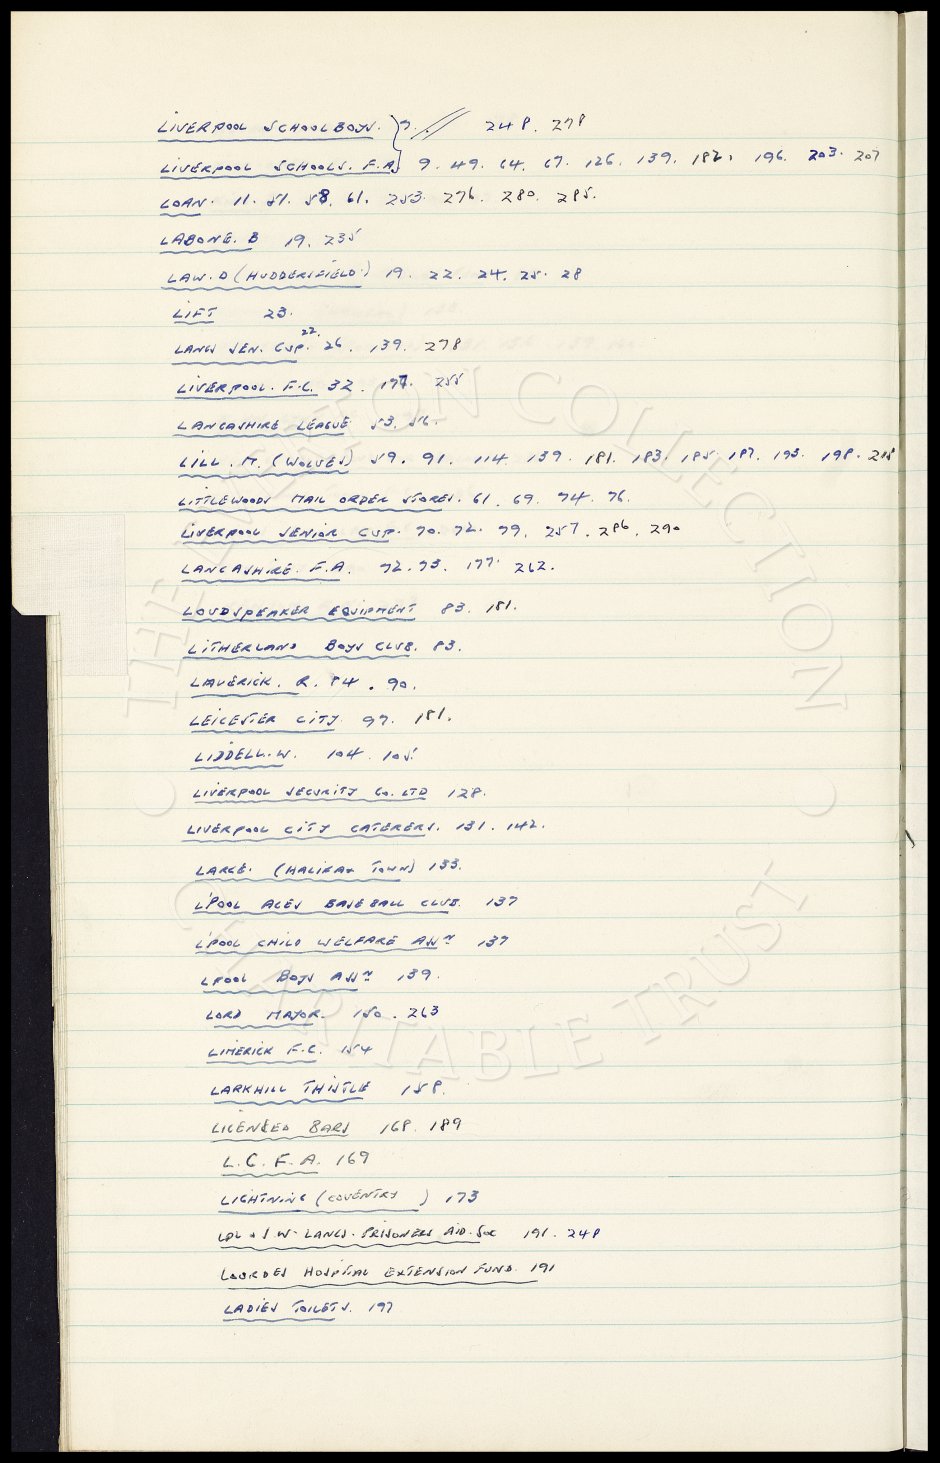 LIVERPOOL SCHOOLBOYS. } 7. // 248. 278
LIVERPOOL SCHOOLS. F.A. } 9. 49. 64. 67. 126. 139. 182. 196. 203. 207
LOAN. 11. 51. 58. 61. 253. 276. 280. 285.
LABONE. B 19. 235
LAW. D (HUDDERSFIELD.) 19. 22. 24. 25. 28
LIFT 23.
LANCS SEN. CUP. 22. 26. 139. 278
LIVERPOOL. F.C. 32. 177. 255
LANCASHIRE LEAGUE 53. 56.
LILL. M. (WOLVES) 59. 91. 114. 139. 181. 183. 185. 187. 193. 198.
LITTLEWOODS MAIL ORDER STORES. 61. 69. 74. 76.
LIVERPOOL SENIOR CUP. 70. 72. 79. 257. 286. 290
LANCASHIRE. F.A. 72. 73. 177. 262.
LOUDSPEAKER EQUIPMENT 83. 181.
LITHERLAND BOYS CLUB. 83.
LAVERICK. R. 84. 90.
LEICESTER CITY. 97. 181.
LIDDELL. W. 104. 105.
LIVERPOOL SECURITY Co. LTD 128.
LIVERPOOL CITY CATERERS. 131. 142.
LARGE. (HALIFAX TOWN) 133.
L'POOL ACES BASEBALL CLUB. 137
L'POOL CHILD WELFARE ASSN 137
LPOOL BOYS ASSN 139.
LORD MAYOR. 150. 263
LIMERICK F.C. 154
LARKHILL THISTLE 158.
LICENSED BARS 168. 189
L.C.F.A. 169
LIGHTNING (COVENTRY ) 173
LPL & S.W. LANCS. PRISONERS AID. Soc 191. 248
LOURDES HOSPITAL EXTENSION FUND. 191
LADIES TOILETS. 197
THE COLLECTION
CHARITABLE TRUST